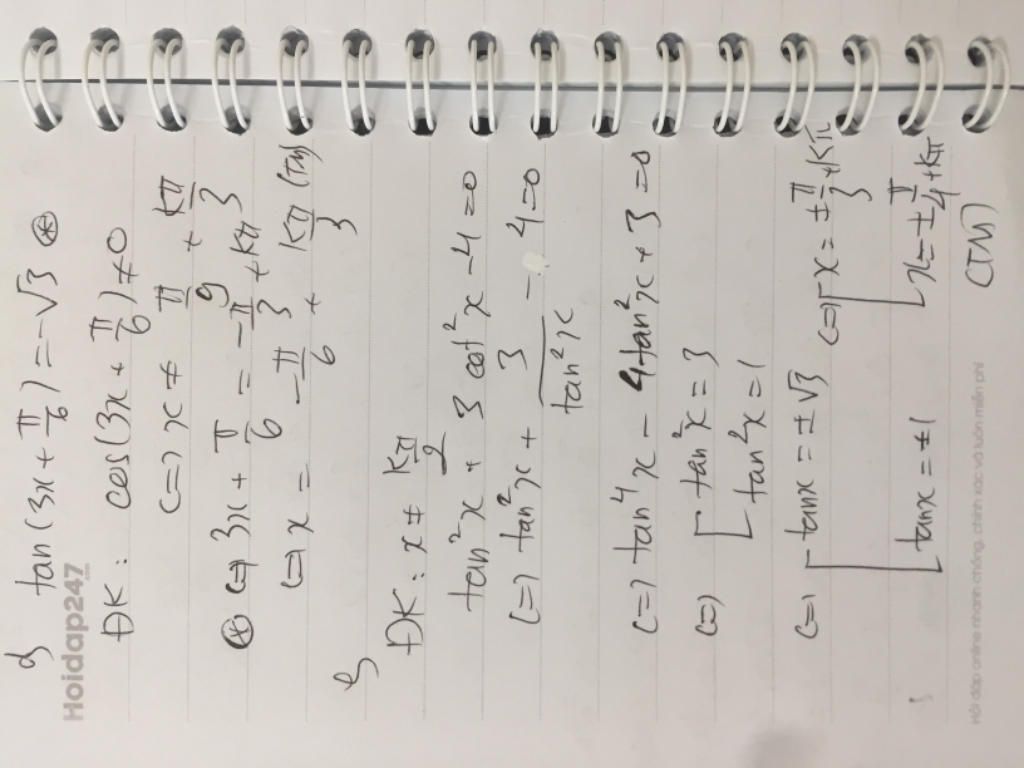 tan(3x + π/6) = -√3 ⊛
Hoidap247
.com
ĐK: cos(3x + π/6) ≠ 0
<=> x ≠ π/9 + kπ/3
⊛ <=> 3x + π/6 = -π/3 + kπ
<=> x = -π/6 + kπ/3 (TM)
ĐK: x ≠ kπ/2
tan²x + 3cot²x - 4 = 0
<=> tan²x + 3/tan²x - 4 = 0
<=> tan⁴x - 4tan²x + 3 = 0
<=> [ tan²x = 3
[ tan²x = 1
<=> [ tanx = ±√3 <=> [ x = ±π/3 + kπ
[ tanx = ±1 [ x = ±π/4 + kπ
(TM)
Hỏi đáp online nhanh chóng, chính xác và luôn miễn phí